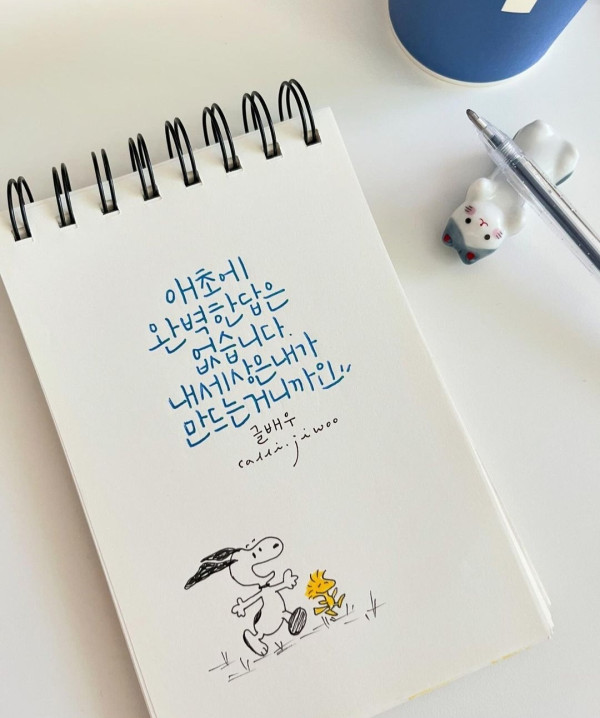 애초에
완벽한답은
없습니다.
내세상은내가
만드는거니까요"
글배우
calli.jiwoo